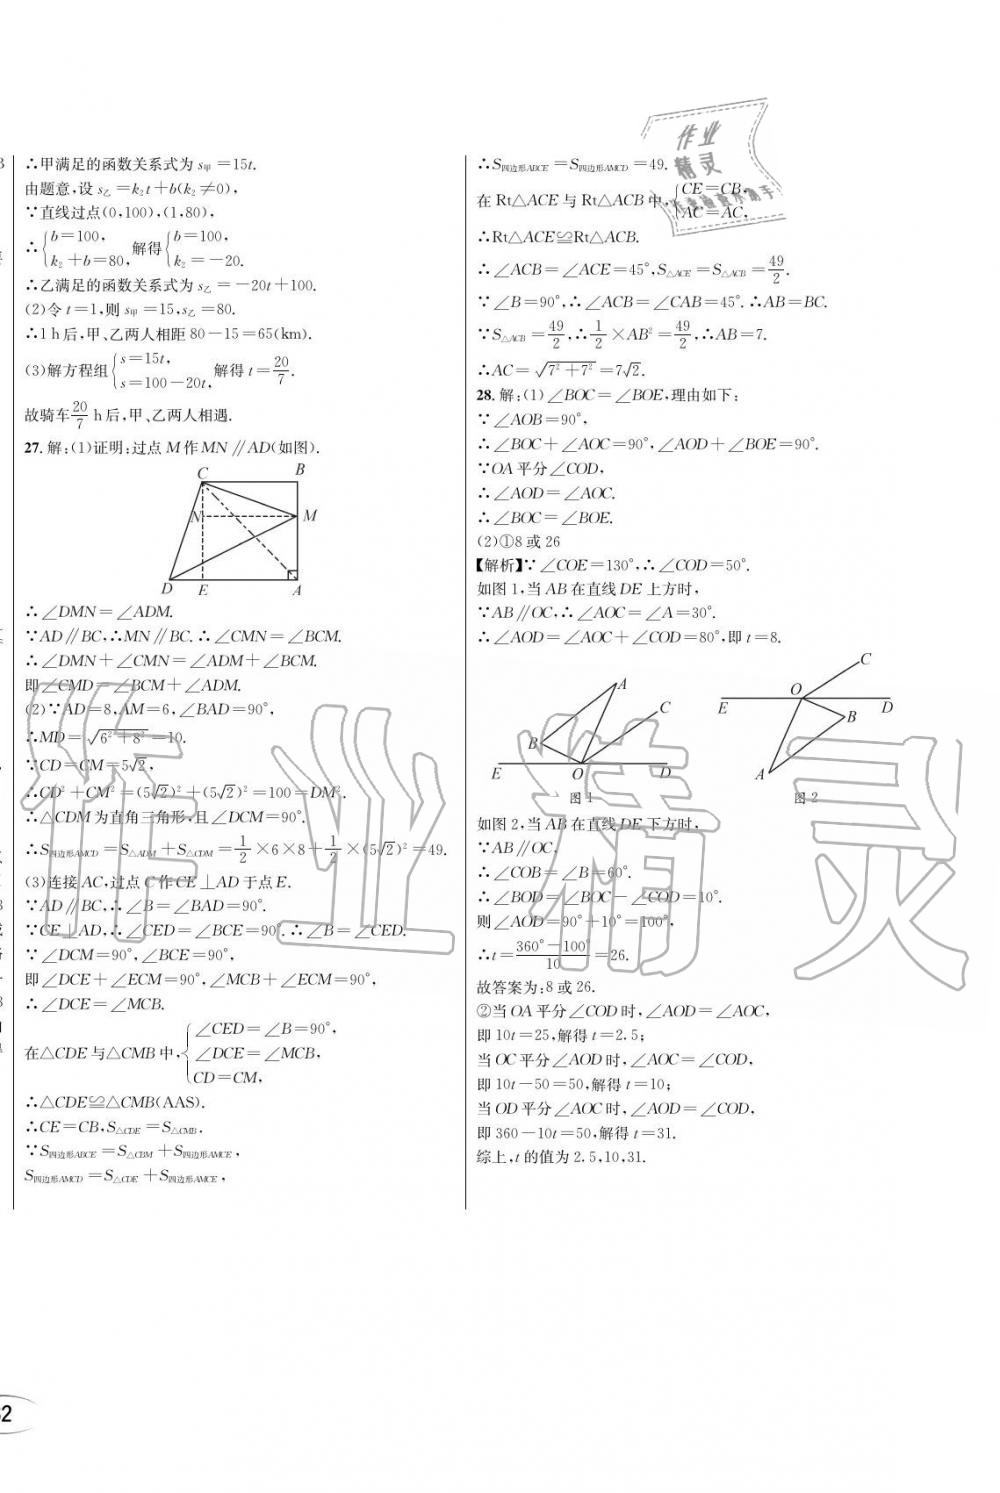 ∴甲满足的函数关系式为 s甲=15t.
由题意,设 s乙=k₂t+b(k₂≠0),
∵直线过点(0,100),(1,80),
∴{b=100, k₂+b=80, 解得{b=100, k₂=-20.
∴乙满足的函数关系式为 s乙=-20t+100.
(2)令 t=1,则 s甲=15,s乙=80.
∴1 h后,甲、乙两人相距 80-15=65(km).
(3)解方程组{s=15t, s=100-20t, 解得 t=20/7.
故骑车20/7 h后,甲、乙两人相遇.
27.解:(1)证明:过点 M 作 MN∥AD(如图).
C B
N M
D E A
∴∠DMN=∠ADM.
∵AD∥BC,∴MN∥BC.∴∠CMN=∠BCM.
∴∠DMN+∠CMN=∠ADM+∠BCM.
即∠CMD=∠BCM+∠ADM.
(2)∵AD=8,AM=6,∠BAD=90°,
∴MD=√(6²+8²)=10.
∵CD=CM=5√2,
∴CD²+CM²=(5√2)²+(5√2)²=100=DM².
∴△CDM为直角三角形,且∠DCM=90°.
∴S四边形AMCD=S△ADM+S△CDM=1/2×6×8+1/2×(5√2)²=49.
(3)连接 AC,过点 C 作 CE⊥AD 于点 E.
∵AD∥BC,∴∠B=∠BAD=90°.
∵CE⊥AD,∴∠CED=∠BCE=90°.∴∠B=∠CED.
∵∠DCM=90°,∠BCE=90°,
即∠DCE+∠ECM=90°,∠MCB+∠ECM=90°,
∴∠DCE=∠MCB.
在△CDE与△CMB中,{∠CED=∠B=90°, ∠DCE=∠MCB, CD=CM,
∴△CDE≌△CMB(AAS).
∴CE=CB,S△CDE=S△CMB.
∵S四边形ABCE=S△CBM+S四边形AMCE,
S四边形AMCD=S△CDE+S四边形AMCE,
∴S四边形ABCE=S四边形AMCD=49.
在 Rt△ACE 与 Rt△ACB 中,{CE=CB, AC=AC,
∴Rt△ACE≌Rt△ACB.
∴∠ACB=∠ACE=45°,S△ACE=S△ACB=49/2.
∵∠B=90°,∴∠ACB=∠CAB=45°.∴AB=BC.
∵S△ACB=49/2,∴1/2×AB²=49/2,∴AB=7.
∴AC=√(7²+7²)=7√2.
28.解:(1)∠BOC=∠BOE,理由如下:
∵∠AOB=90°,
∴∠BOC+∠AOC=90°,∠AOD+∠BOE=90°.
∵OA平分∠COD,
∴∠AOD=∠AOC.
∴∠BOC=∠BOE.
(2)①8或26
【解析】∵∠COE=130°,∴∠COD=50°.
如图1,当 AB 在直线 DE 上方时,
∵AB∥OC,∴∠AOC=∠A=30°.
∴∠AOD=∠AOC+∠COD=80°,即 t=8.
A C B E O D
图1
C O E D B A
图2
如图2,当 AB 在直线 DE 下方时,
∵AB∥OC,
∴∠COB=∠B=60°.
∴∠BOD=∠BOC-∠COD=10°.
则∠AOD=90°+10°=100°,
∴t=(360°-100°)/10=26.
故答案为:8或26.
②当 OA 平分∠COD 时,∠AOD=∠AOC,
即 10t=25,解得 t=2.5;
当 OC 平分∠AOD 时,∠AOC=∠COD,
即 10t-50=50,解得 t=10;
当 OD 平分∠AOC 时,∠AOD=∠COD,
即 360-10t=50,解得 t=31.
综上,t 的值为 2.5,10,31.
作业
精灵
作业精灵